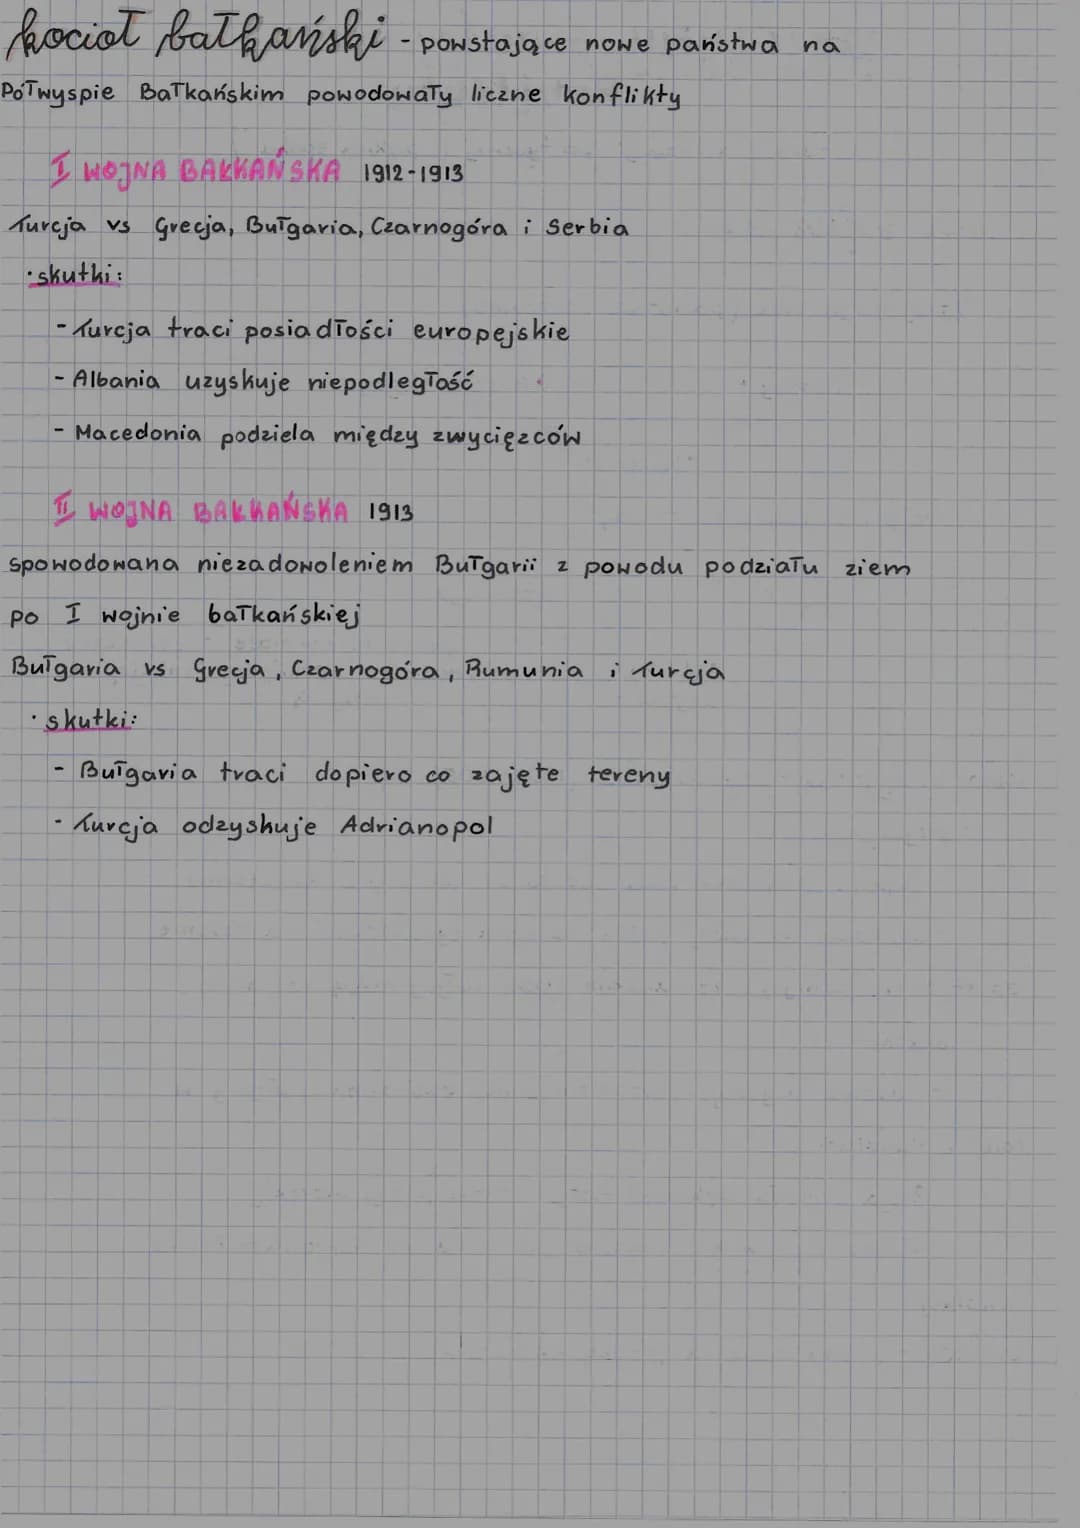 kocioł bałkański - powstające nowe państwa na
Półwyspie Bałkańskim powodowały liczne konflikty
I WOJNA BAŁKAŃSKA 1912-1913
Turcja vs Grecja, Bułgaria, Czarnogóra i Serbia
• skutki:
- Turcja traci posiadłości europejskie
- Albania uzyskuje niepodległość
- Macedonia podziela między zwycięzców
II WOJNA BAŁKAŃSKA 1913
spowodowana niezadowoleniem Bułgarii z powodu podziału ziem
po I wojnie bałkańskiej
Bułgaria vs Grecja, Czarnogóra, Rumunia i Turcja
• skutki:
- Bułgaria traci dopiero co zajęte tereny
- Turcja odzyskuje Adrianopol